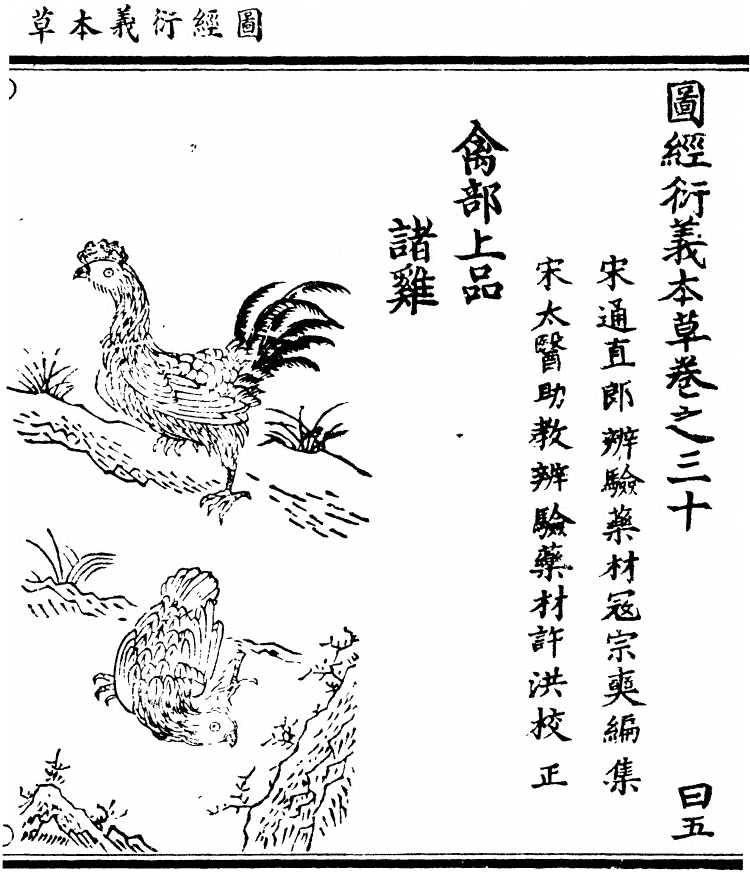 圖經衍義本草
圖經衍義本草卷之三十
曰五
宋通直郎辨驗藥材寇宗奭編集
宋太醫助教辨驗藥材許洪校正
禽部上品
諸雞